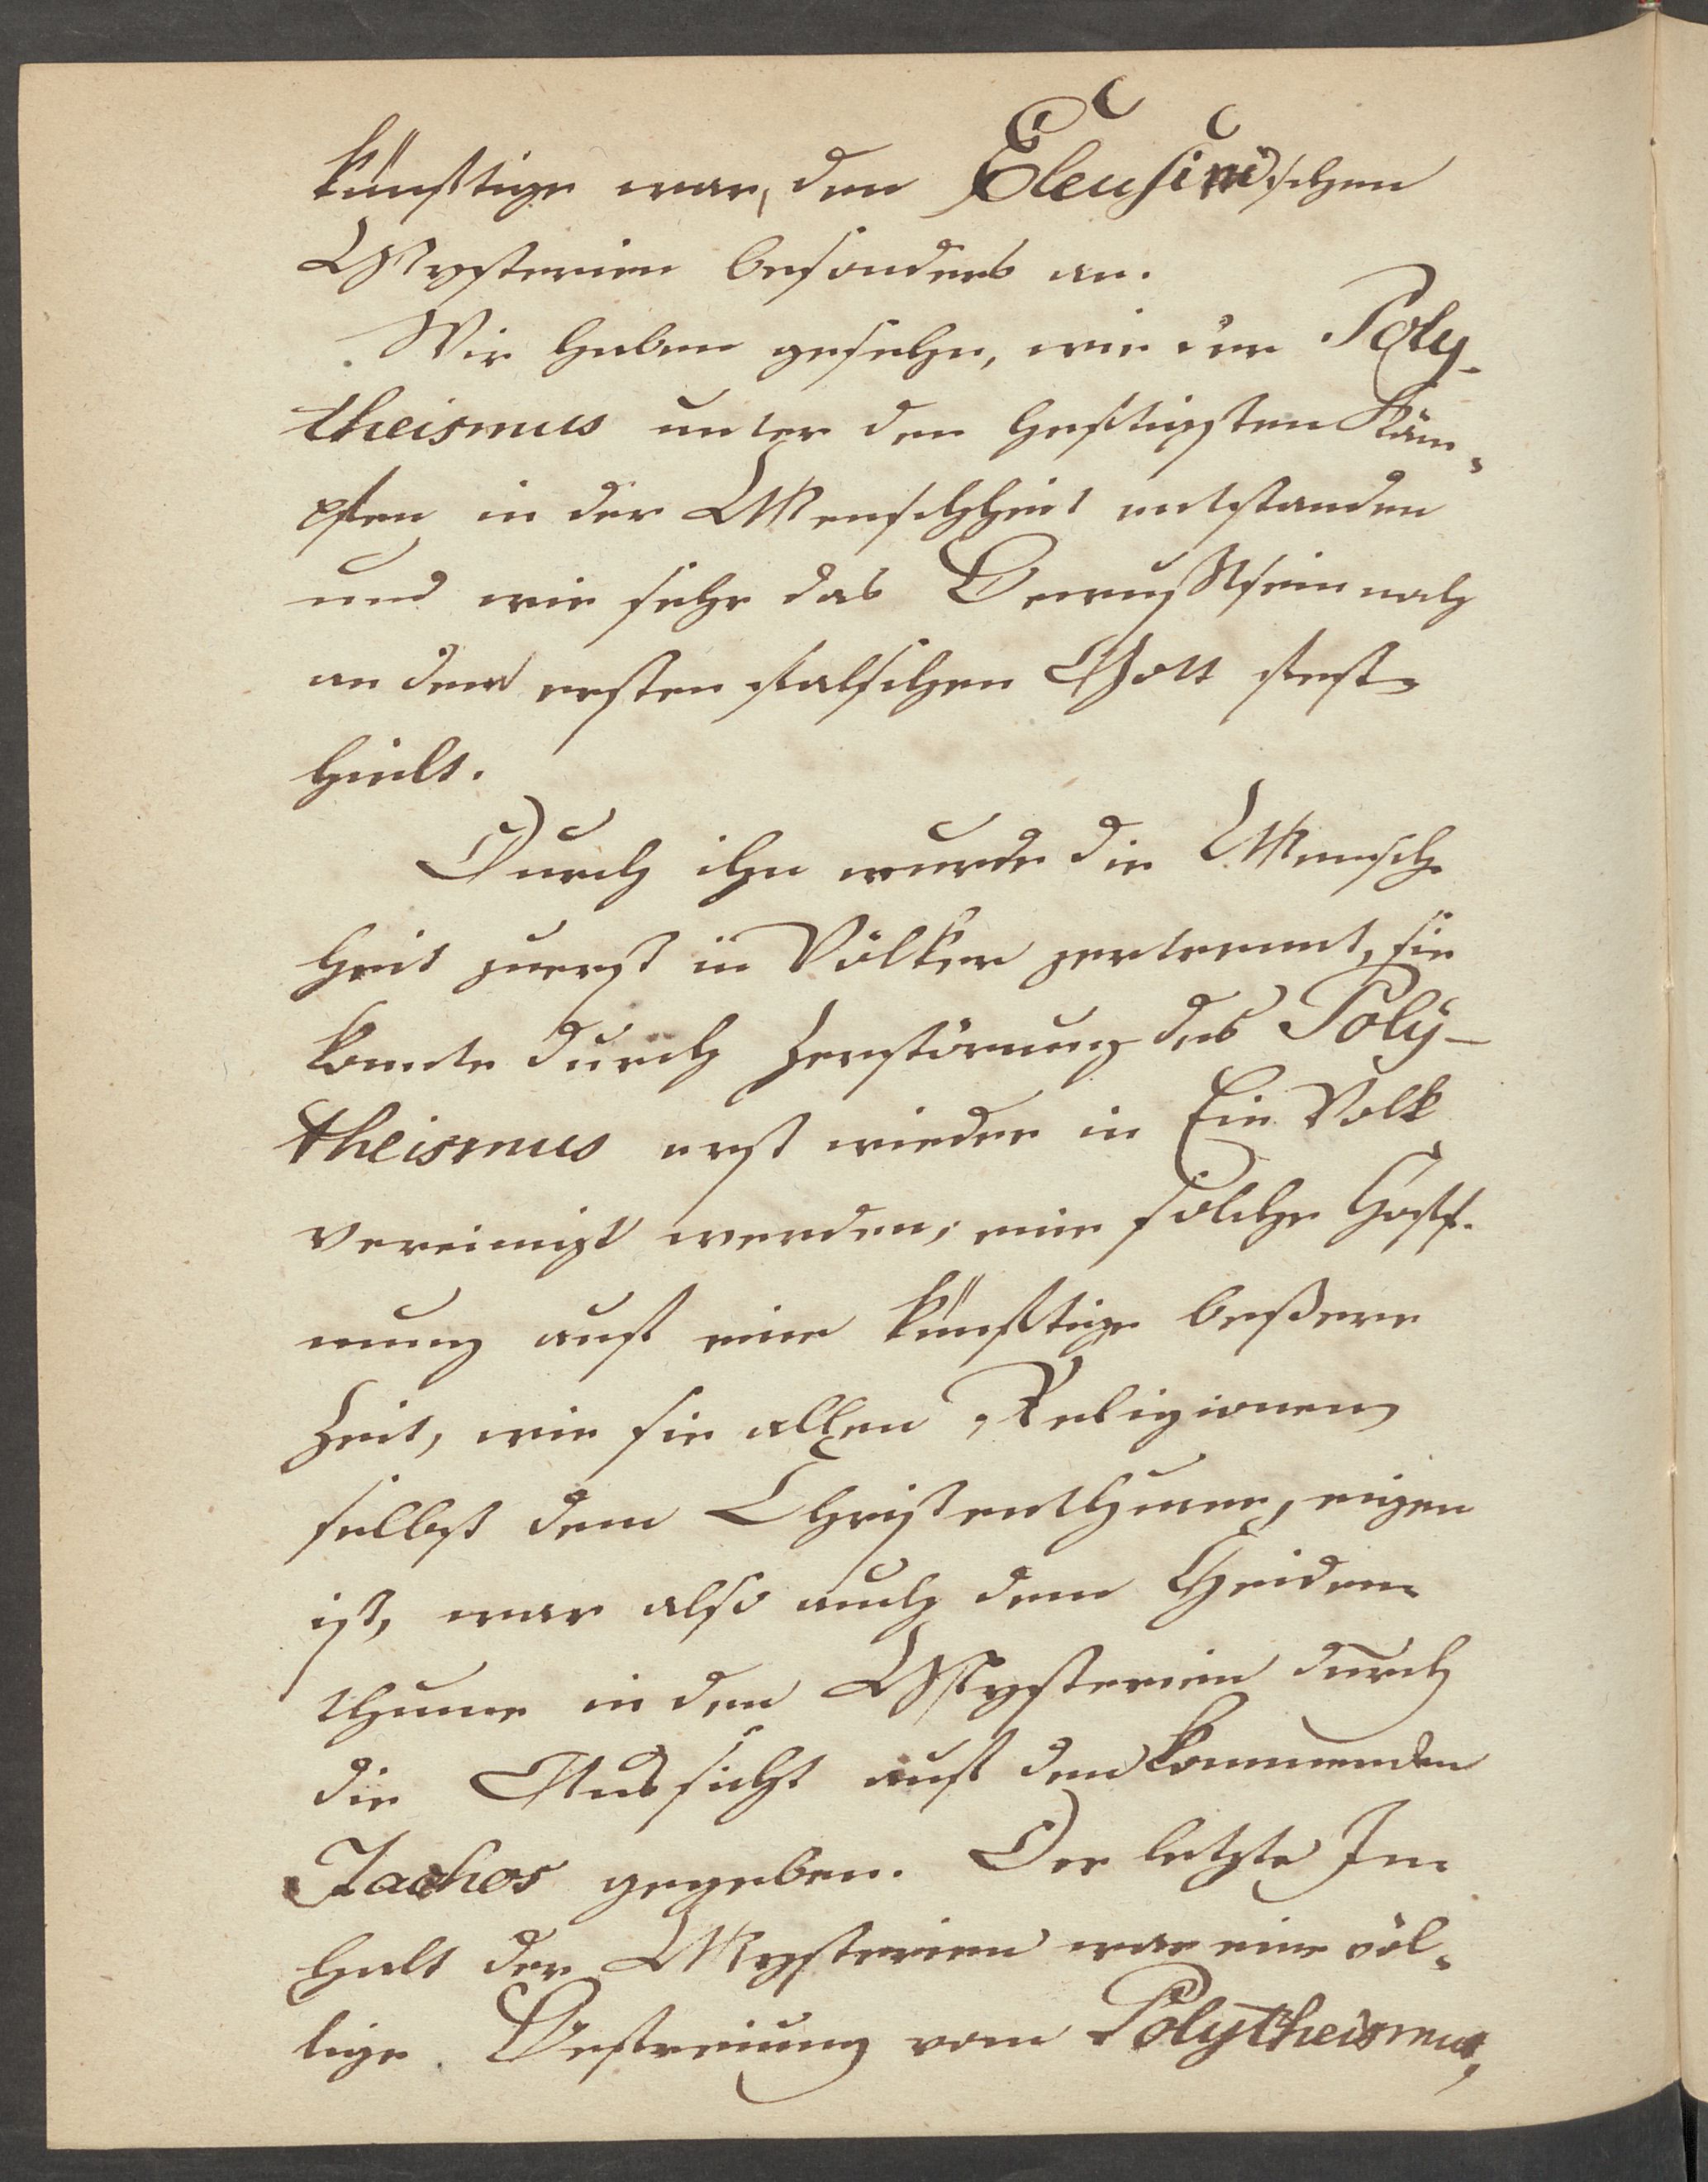 künftige war, den Eleusinischen
Mysterien besonders an.
Wir haben gesehn, wie der Poly-
theismus unter den heftigsten Käm-
pfen in der Menschheit entstanden
und wie sehr das Bewußtsein noch
an dem ersten falschen Gott fest-
hielt.
Durch ihn wurde die Mensch-
heit zuerst in Völker zertrennt, sie
konnte durch Zerstörung des Poly-
theismus erst wieder in Ein Volk
vereinigt werden; eine solche Hoff-
nung auf eine künftige beßere
Zeit, wie sie allen Religionen
selbst dem Christenthume, eigen
ist, war also auch dem Heiden-
thume in den Mysterien durch
die Aussicht auf den kommenden
Jachos gegeben. Der letzte In-
halt der Mysterien war eine völ-
lige Befreiung vom Polytheismus,